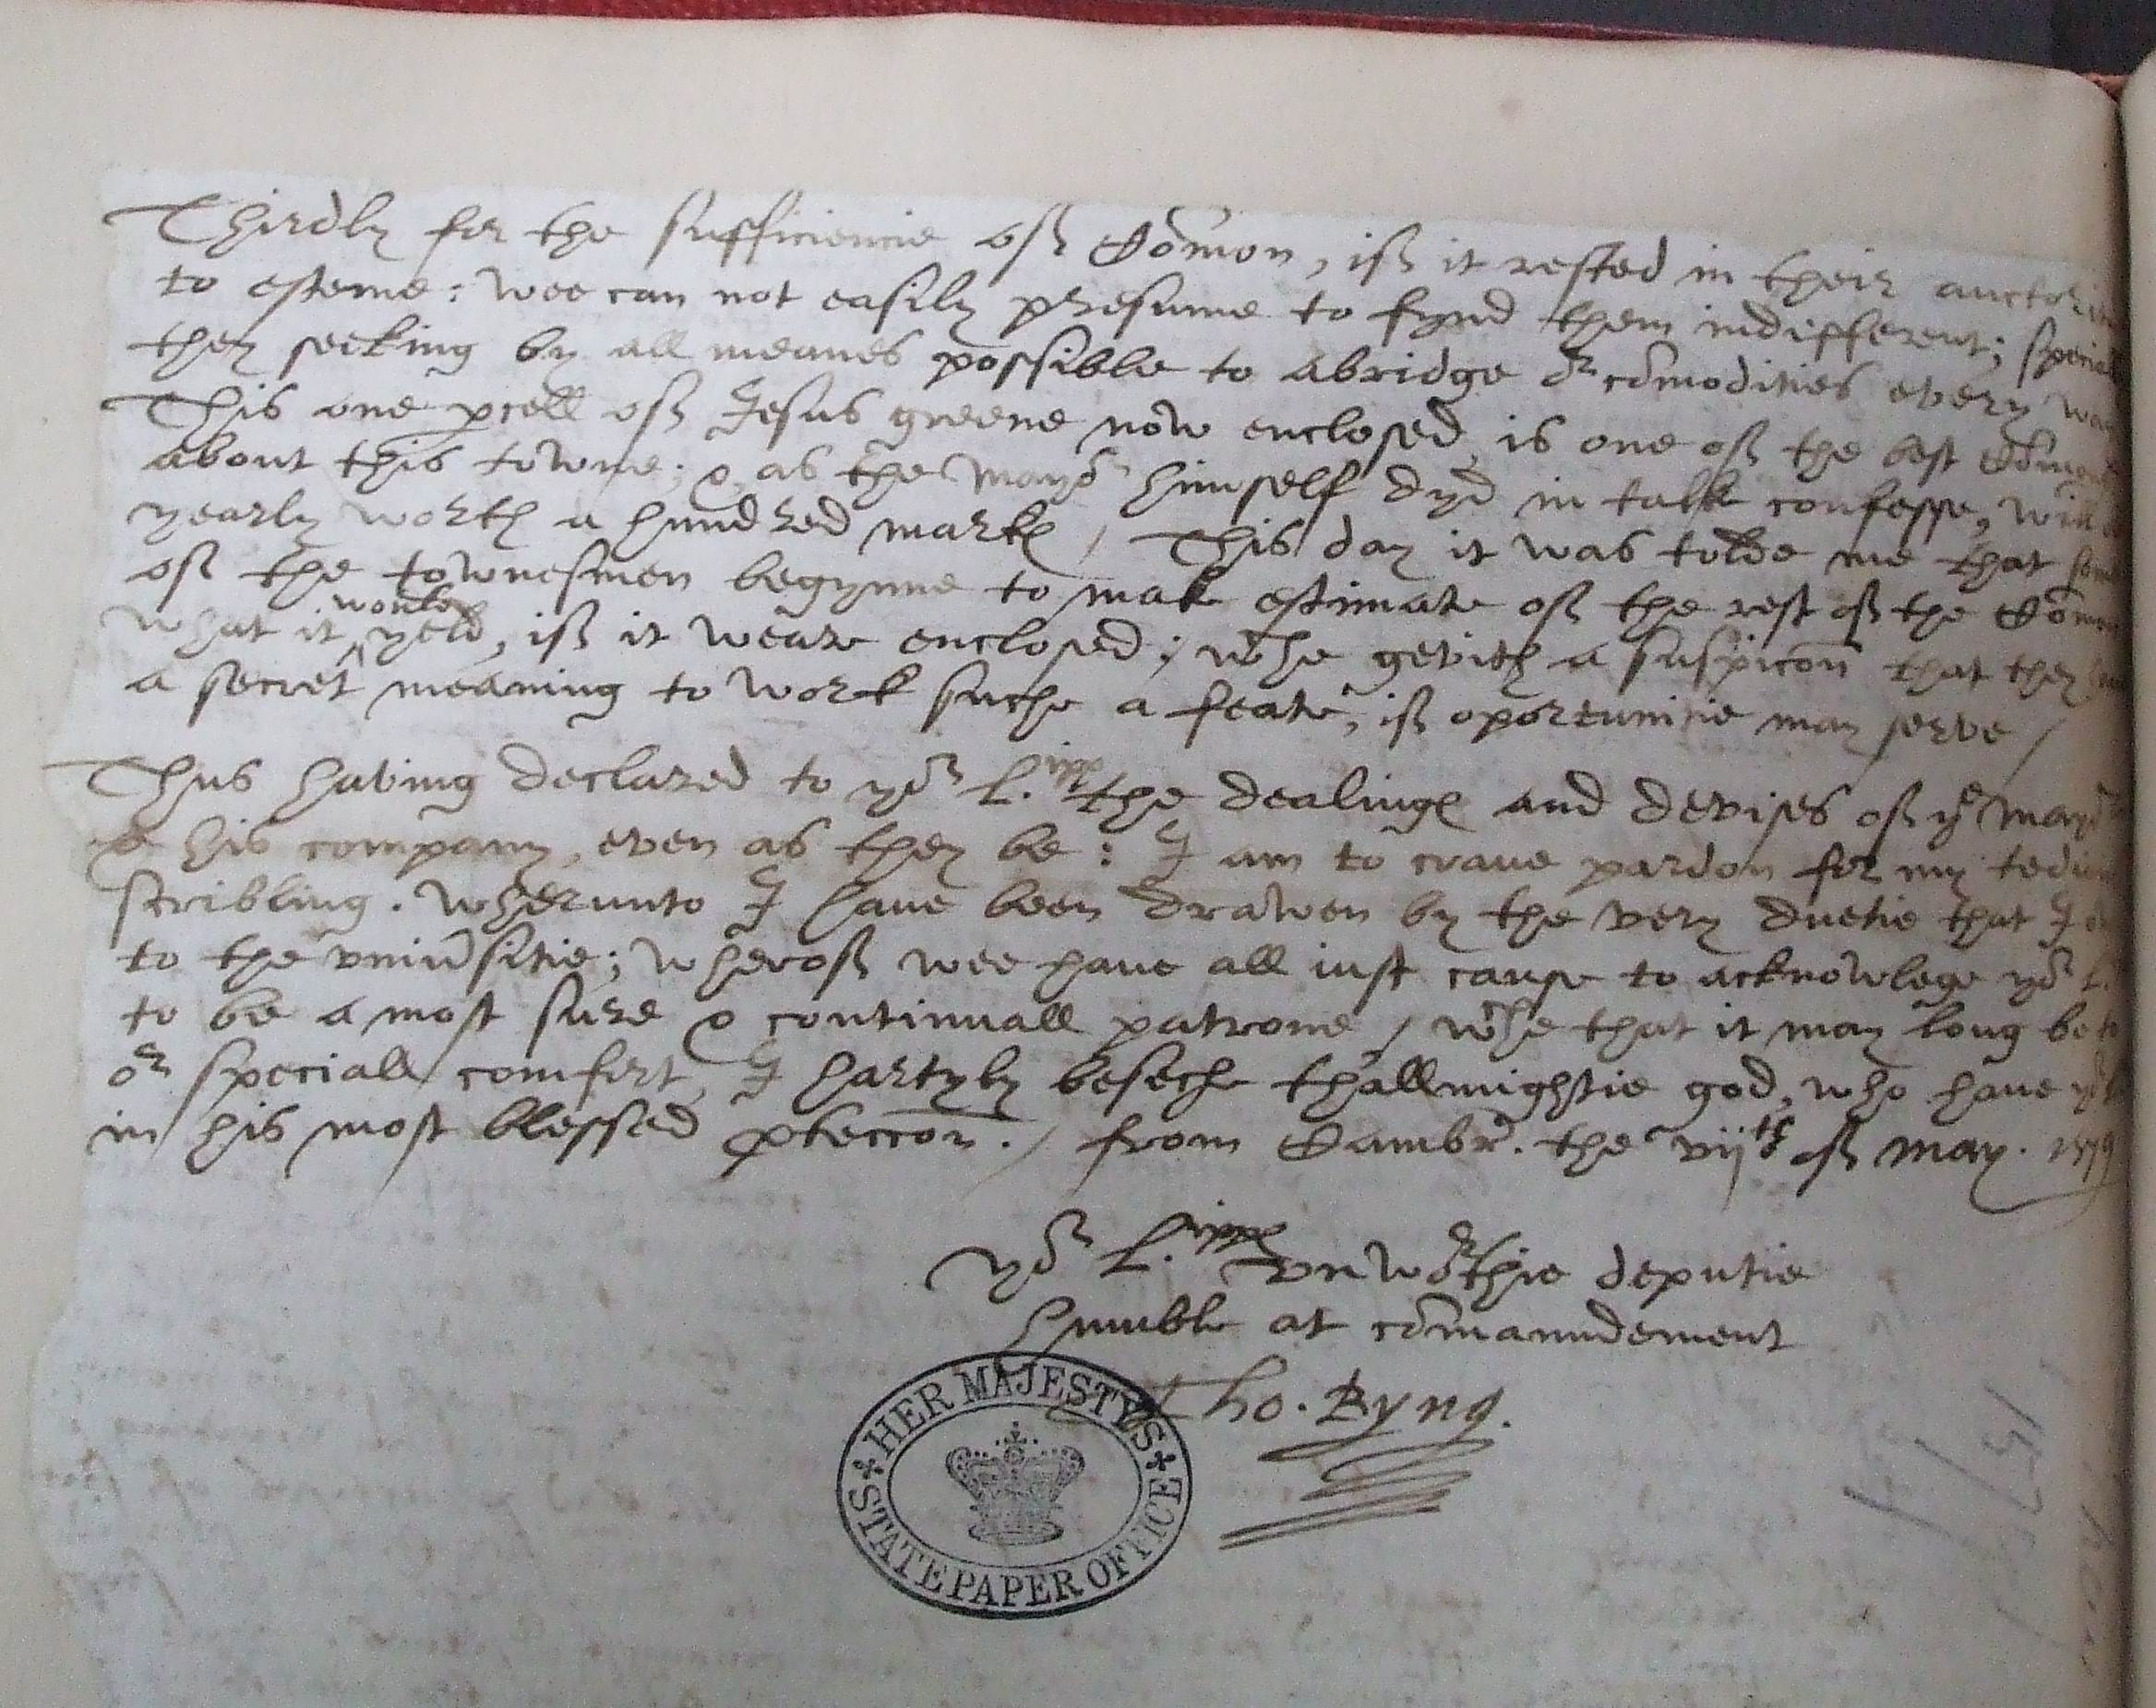 Thirdly for the sufficiencie off Cōmon, iff it rested in their
to esteme: wee can not easily presume to fynd them indifferent;
they seeking by all meanes possible to abridge or cōmodities every
This one pcell off Jesus greene now enclosed, is one off the best
about this towne; & as the Mayor himself dyd in talk confesse,
yearly worth a hundred markes / This day it was tolde me that
off the townesmen begynne to mak estimate off the rest off the
what it woulde yeld, iff it weare enclosed; wche gevith a suspicon that they
a secret meaning to work suche a feate, iff oportunitie may serve /
Thus having declared to yor L.ipp the dealinges and devises off ye Mayor
& his company, even as they be: I am to crave pardon for my
scribling. Wherunto I have been drawen by the very duetie that I
to the vniusitie; wheroff wee have all iust cause to acknowlege yor L.
to be a most sure & continuall patrone / wche that it may long be
or speciall comfort, I hartyly beseche thallmightie god, who have
in his most blessed pteccon. / from Cambr. the vijth off May. 1579
Yor L.ipp vnworthie deputie
humble at cōmaundement
Tho. Byng.
HER MAJESTY'S
STATE PAPER OFFICE